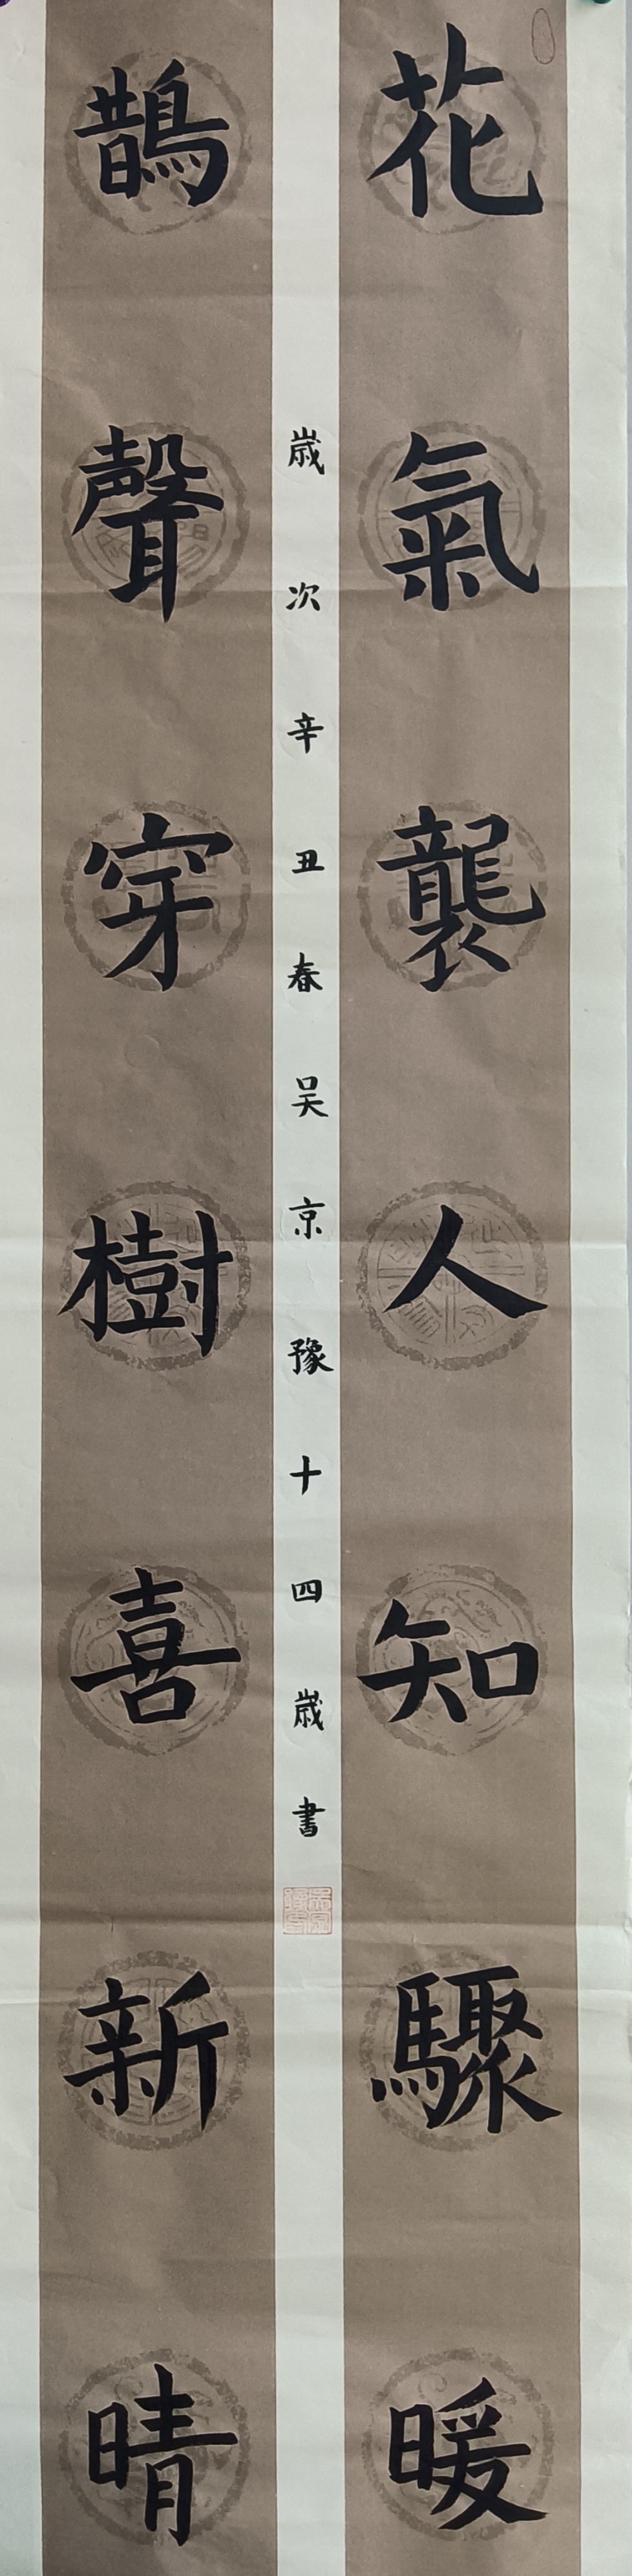 花氣襲人知驟暖
鵲聲穿樹喜新晴
歲次辛丑春吴京豫十四歲書